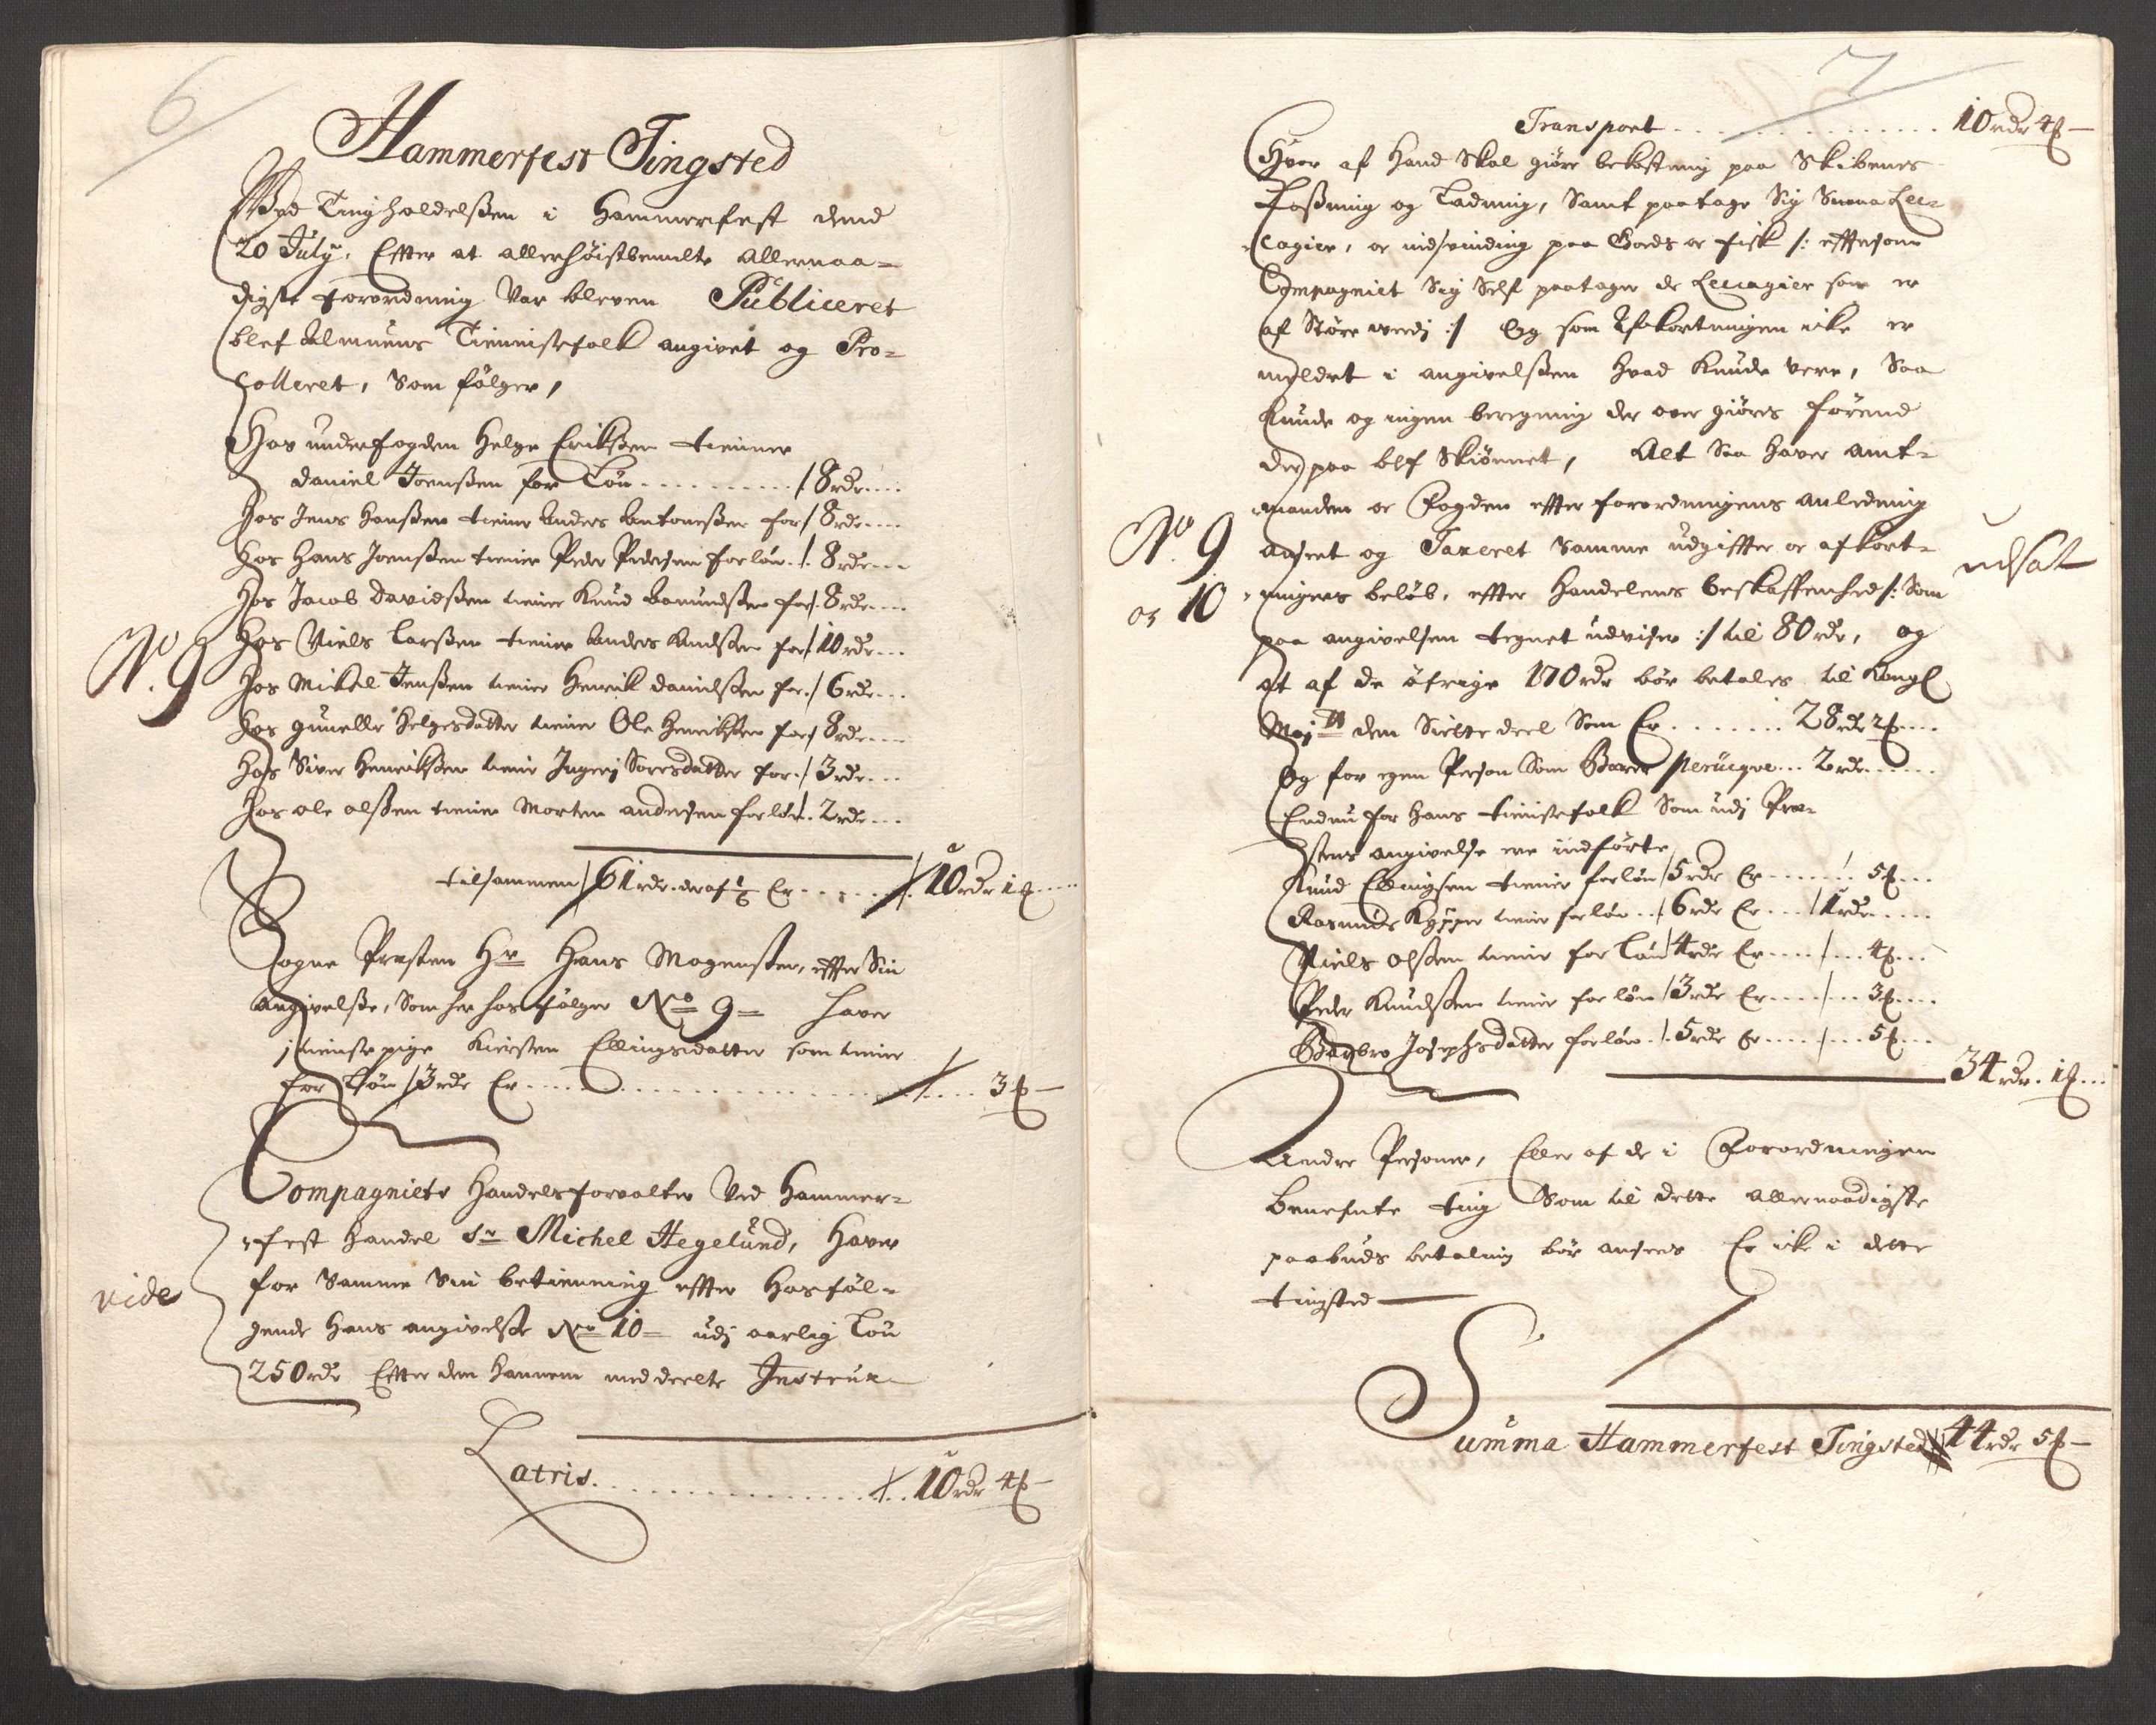 6
Hammerfest Tingsted
Wed Tingholdelsen i Hammerfest dend
20 July, Effter at allerhöistbemelte Allernaa-
digste forordning Var bleven Publiceret
blef Almuens Tienistefolk angivet og Pro-
colleret, Som fölger,
Hos underfogden Helge Eriksen tiener
Daniel Joensen for Lön / 8 rdr
Hos Jens Hansen tiener Anders Antonesen for / 8 rdr
Hos Hans Joensen tiener Peder Pedersen for lön / 8 rdr
Hos Jacob Davidsen tiener Knud Amundsen for / 8 rdr
No. 9
Hos Niels Larsen tiener Anders Knudsen for / 10 rdr
Hos Mikel Jensen tiener Henrik Danielsen for / 6 rdr
Hos Gunelle Helgesdatter tiener Ole Henriksen for / 8 rdr
Hos Siver Henriksen tiener Ingeri Soresdatter for / 3 rdr
Hos Ole Olsen tiener Morten Andersen for lön / 2 rdr
tilsammen / 61 rdr. deraf 1/6 Er / 10 rdr 1 ß
Sogne Presten Hr Hans Mogensen, effter Sin
Angivelse, Som her hos fölger No 9 haver
j tieniste pige Kirsten Ellingsdatter som tiener
for Lön / 3 rdr Er / 3 ß
Compagniets Handelsforvalter Ved Hammer-
fest Handel Sr Michel Hegelund, Haver
for Samme Sin betienning effter Hosföl-
vide
gende Hans angivelse No 10 udj aarlig Lön
250 rdr Effter den hannem meddeelte Instrux
Latris / 10 rdr 4 ß
7
Transport 10 rdr 4 ß
Hvor af Hand Skal giöre bekostning paa Skibenes
Losning og Ladning, Samt paatage Sig Smaa Lec-
cagier, oc indsvinding paa Gods oc fisk /: eftersom
Compagniet Sig Self paatager de Leccagier som er
af Större verdj :/ Og som Afkortningen icke er
meldet i angivelsen hvad kunde være, Saa
kunde og ingen beregning der over giöres förend
der paa blef Skiönnet, Alt Saa haver Amt-
manden oc Fogden effter forordningens anledning
No. 9
anseet og Taxeret Samme udgiffter oc afkort-
udsat
og 10
ningers belöb, effter Handelens beskaffenhed /: Som
paa angivelsen tegnet udviser :/ til 80 rdr, og
at af de öfrige 170 rdr bör betales til Kongl
Maytt den Siette deel Som Er 28 rdr 2 ß
Og for egen Person Som Bærer perücqve 2 rdr
Endnu for Hans tienistefolk Som udj Præ-
stens angivelse ere indförte
Knud Ellingsen tiener for lön / 5 rdr Er 5 ß
Rasmus Kypper tiener for lön / 6 rdr Er / 1 rdr
Niels Olsen tiener for Lön / 4 rdr Er / 4 ß
Peder Knudsen tiener for lön / 3 rdr Er / 3 ß
Barbro Josephsdatter for lön / 5 rdr Er / 5 ß
34 rdr. 1 ß
Andre Personer, Eller af de i Forordningen
benefnte ting Som til dette allernaadigste
paabuds betaling bör ansees Er icke i dette
tingsted
Summa Hammerfest Tingsted 44 rdr 5 ß